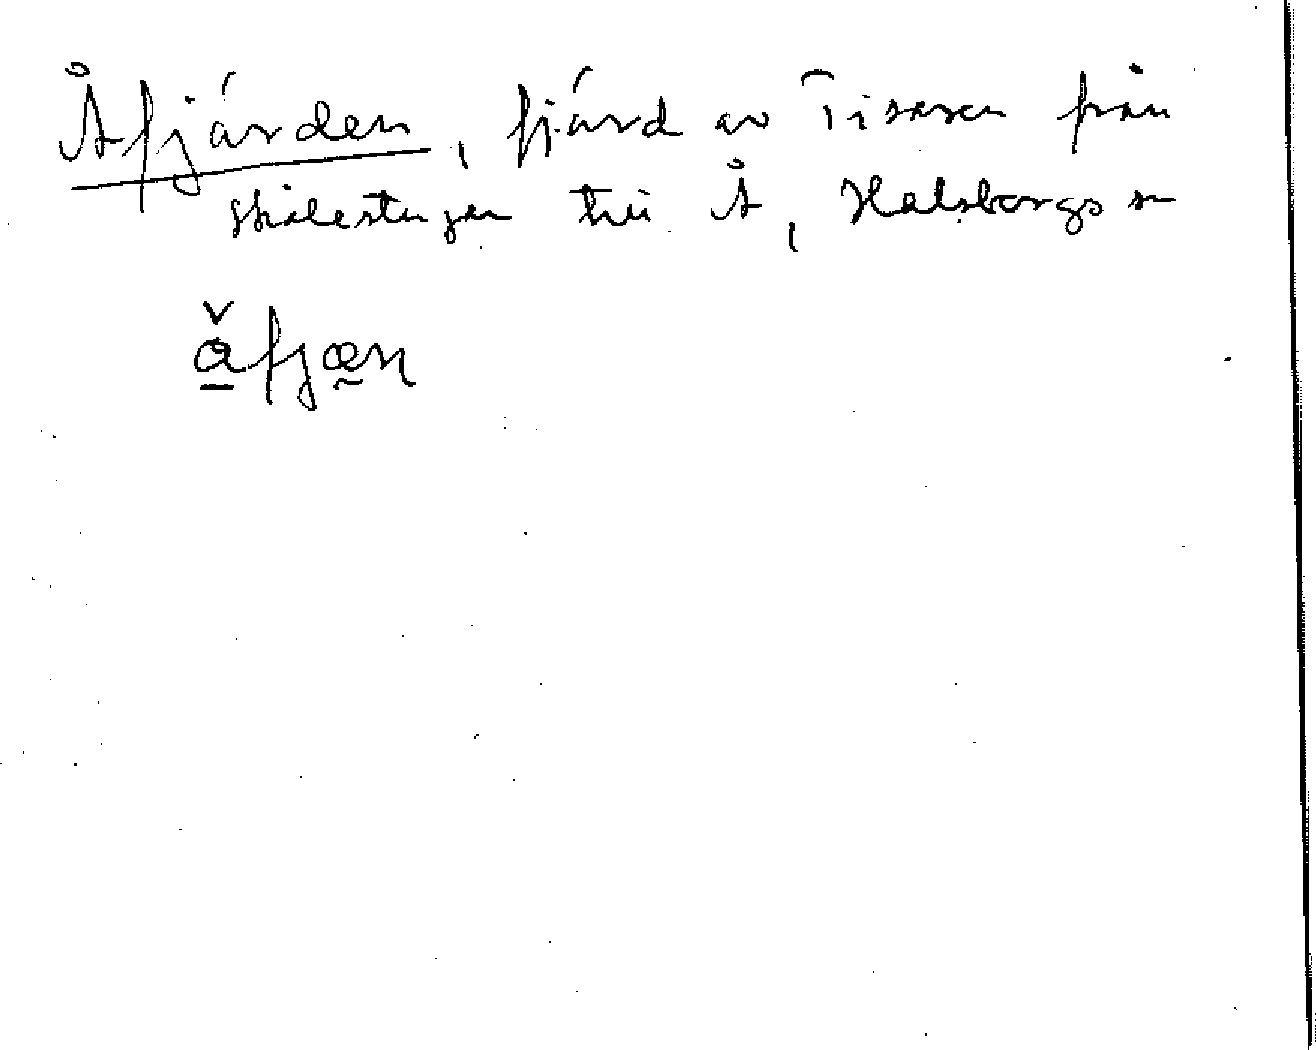 Åfjärden, fjärd av Tisaren från
till Å, Halsbergs sn
åfjæn